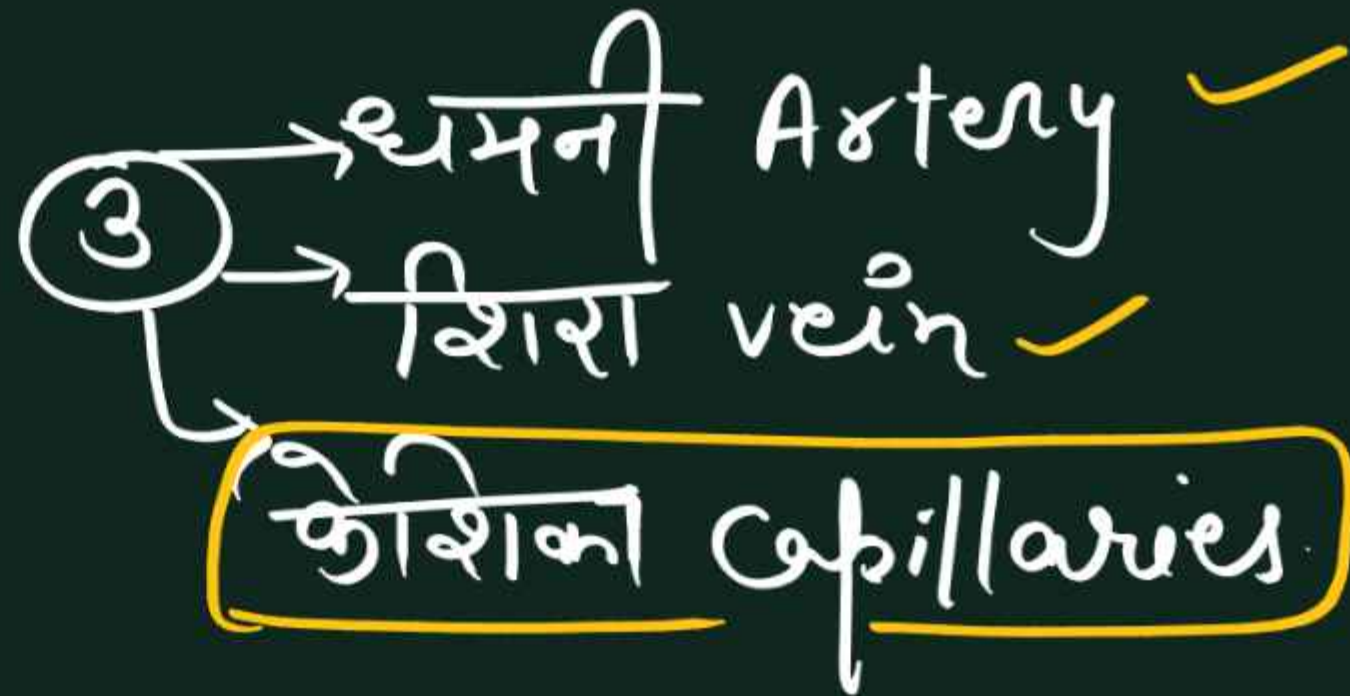 3
धमनी Artery
शिरा vein
केशिका Capillaries.